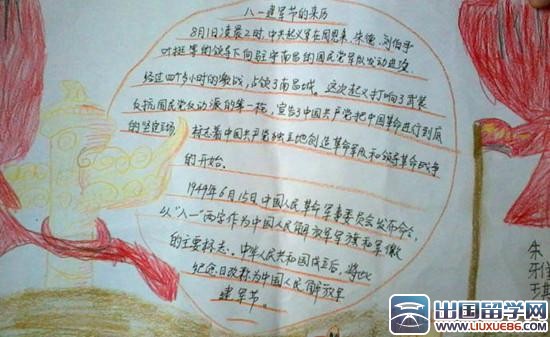 八一建军节的来历
8月1日凌晨2时,中共起义军在周恩来、朱德、刘伯承
叶挺等的领导下向驻守南昌的国民党军队发动进攻,
经过四个多小时的激战,占领了南昌城。这次起义打响了武装
反抗国民党反动派的第一枪,宣告了中国共产党把中国革命进行到底
的坚定立场,标志着中国共产党独立地创造革命军队和领导革命战争
的开始。
1949年6月15日,中国人民革命军事委员会发布命令,
以"八一"两字作为中国人民解放军军旗和军徽
的主要标志。中华人民共和国成立后,将此
纪念日改称为中国人民解放军
建军节。
朱
出国留学网
WWW.LIUXUE86.COM